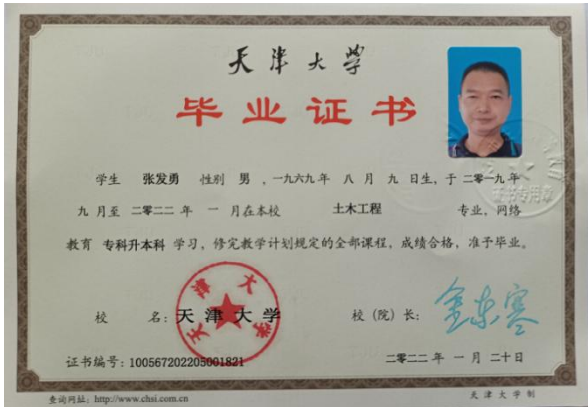 天津大学
毕业证书
学生 张发勇 性别 男 ,一九六九年 八 月 九 日生,于 二零一九年
九 月至 二零二二 年 一 月在本校 土木工程 专业,网络
教育 专科升本科 学习,修完教学计划规定的全部课程,成绩合格,准予毕业。
校 名:天津大学 校(院)长:金东寒
天津大学
证书编号:100567202205001821 二零二二 年 一 月 二十日
查询网址:http://www.chsi.com.cn 天津大学制
证书专用章